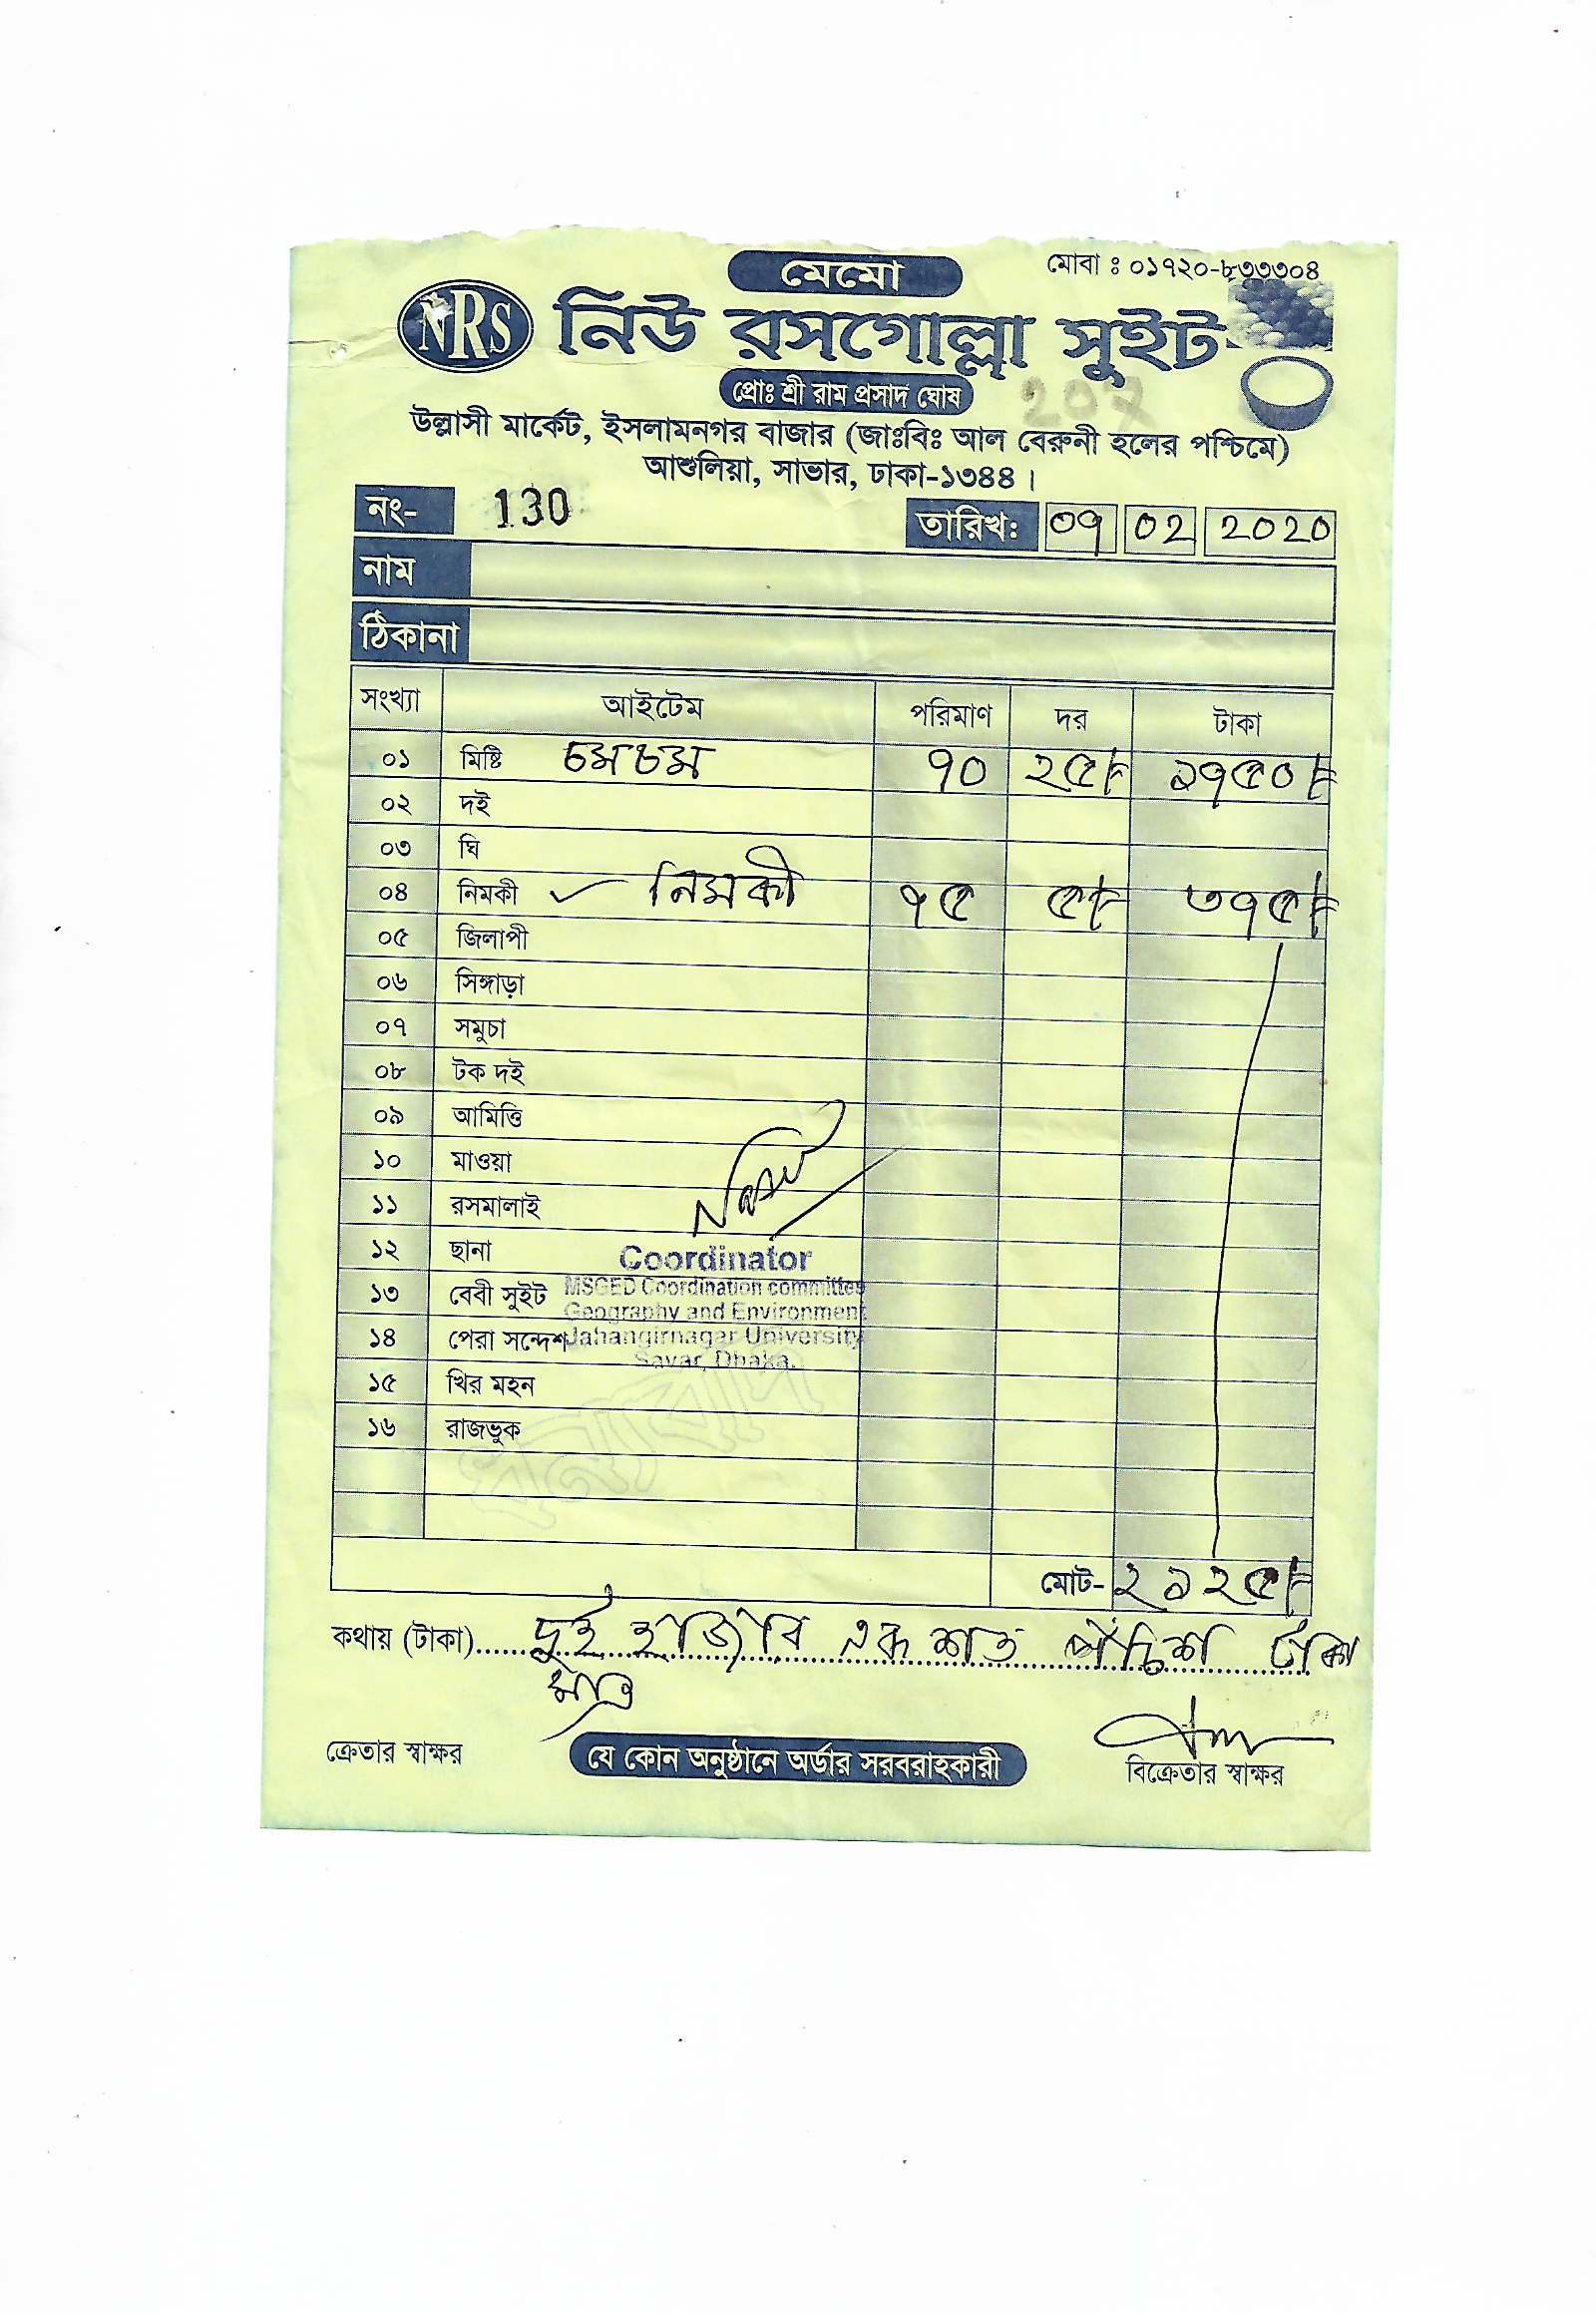 মেমো
মোবা ঃ ০১৭২০-৮৩৩৩০৪
NRS নিউ রসগোল্লা সুইট
প্রোঃ শ্রী রাম প্রসাদ ঘোষ
207
উল্লাসী মার্কেট, ইসলামনগর বাজার (জাঃবিঃ আল বেরুনী হলের পশ্চিমে)
আশুলিয়া, সাভার, ঢাকা-১৩৪৪।
নং- 130 তারিখ: ০৭ 02 2020
নাম
ঠিকানা
সংখ্যা আইটেম পরিমাণ দর টাকা
০১ মিষ্টি চমচম ৭০ ২৫/= ১৭৫০/=
০২ দই
০৩ ঘি
০৪ নিমকী ✓ নিমকী ৭৫ ৫/= ৩৭৫/=
০৫ জিলাপী
০৬ সিঙ্গাড়া
০৭ সমুচা
০৮ টক দই
০৯ আমিত্তি
১০ মাওয়া
১১ রসমালাই
১২ ছানা
১৩ বেবী সুইট
১৪ পেরা সন্দেশ
১৫ খির মহন
১৬ রাজভুক
Coordinator
MSGED Coordination committee
Geography and Environment
Jahangirnagar University
Savar, Dhaka.
ধন্যবাদ
মোট- ২১২৫/=
কথায় (টাকা) দুই হাজার একশত পঁচিশ টাকা
মাত্র
ক্রেতার স্বাক্ষর যে কোন অনুষ্ঠানে অর্ডার সরবরাহকারী বিক্রেতার স্বাক্ষর